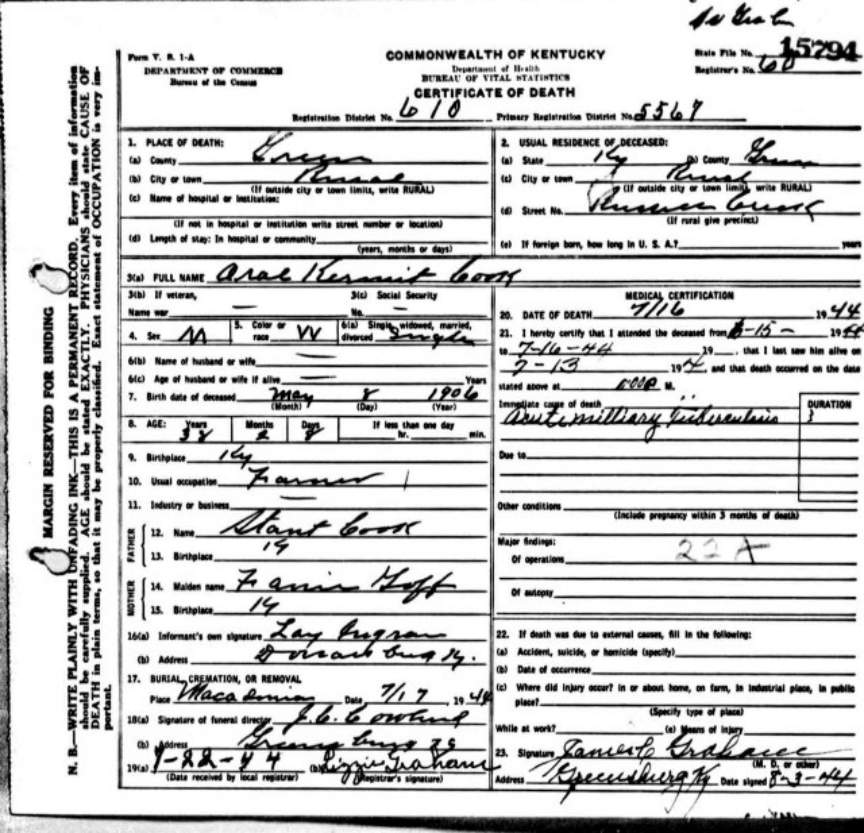 15794
Form V. S. 1-A
DEPARTMENT OF COMMERCE
Bureau of the Census
COMMONWEALTH OF KENTUCKY
Department of Health
BUREAU OF VITAL STATISTICS
CERTIFICATE OF DEATH
State File No.
Registrar's No. 60
Registration District No. 610 Primary Registration District No. 5567
MARGIN RESERVED FOR BINDING
N. B.—WRITE PLAINLY WITH UNFADING INK—THIS IS A PERMANENT RECORD. Every item of information
should be carefully supplied. AGE should be stated EXACTLY. PHYSICIANS should state CAUSE OF
DEATH in plain terms, so that it may be properly classified. Exact statement of OCCUPATION is very im-
portant.
1. PLACE OF DEATH:
(a) County Green
(b) City or town Rural
(If outside city or town limits, write RURAL)
(c) Name of hospital or institution:
(If not in hospital or institution write street number or location)
(d) Length of stay: In hospital or community
(years, months or days)
2. USUAL RESIDENCE OF DECEASED:
(a) State Ky (b) County Green
(c) City or town Rural
(If outside city or town limits, write RURAL)
(d) Street No. Russell Creek
(If rural give precinct)
(e) If foreign born, how long in U. S. A.? years
3(a) FULL NAME Aral Kermit Cook
3(b) If veteran, 3(c) Social Security
Name war — No. —
4. Sex M 5. Color or race W 6(a) Single, widowed, married, divorced Single
6(b) Name of husband or wife —
6(c) Age of husband or wife if alive — Years
7. Birth date of deceased May 8 1906
(Month) (Day) (Year)
8. AGE: Years Months Days If less than one day
38 2 8 hr. min.
9. Birthplace Ky
10. Usual occupation Farmer
11. Industry or business —
FATHER
12. Name Stant Cook
13. Birthplace Ky
MOTHER
14. Maiden name Fannie Goff
15. Birthplace Ky
16(a) Informant's own signature Lay Ingram
(b) Address Ky.
17. BURIAL, CREMATION, OR REMOVAL
Place Macadonia Date 7/17 1944
18(a) Signature of funeral director J.C. Cowherd
(b) Address Greensburg Ky
19(a) 7-22-44 (b) Lizzie Graham
(Date received by local registrar) (Registrar's signature)
MEDICAL CERTIFICATION
20. DATE OF DEATH 7/16 1944
21. I hereby certify that I attended the deceased from 6-15- 1944
to 7-16-44 19 , that I last saw him alive on
7-13 194 , and that death occurred on the date
stated above at M.
Immediate cause of death DURATION
Acute milliary Tuberculosis
Due to
Other conditions
(Include pregnancy within 3 months of death)
Major findings:
Of operations 22 A
Of autopsy
22. If death was due to external causes, fill in the following:
(a) Accident, suicide, or homicide (specify)
(b) Date of occurrence
(c) Where did injury occur? in or about home, on farm, in industrial place, in public
place?
(Specify type of place)
While at work? (e) Means of injury
23. Signature James C Graham
(M. D. or other)
Address Greensburg Ky Date signed 8-3-44